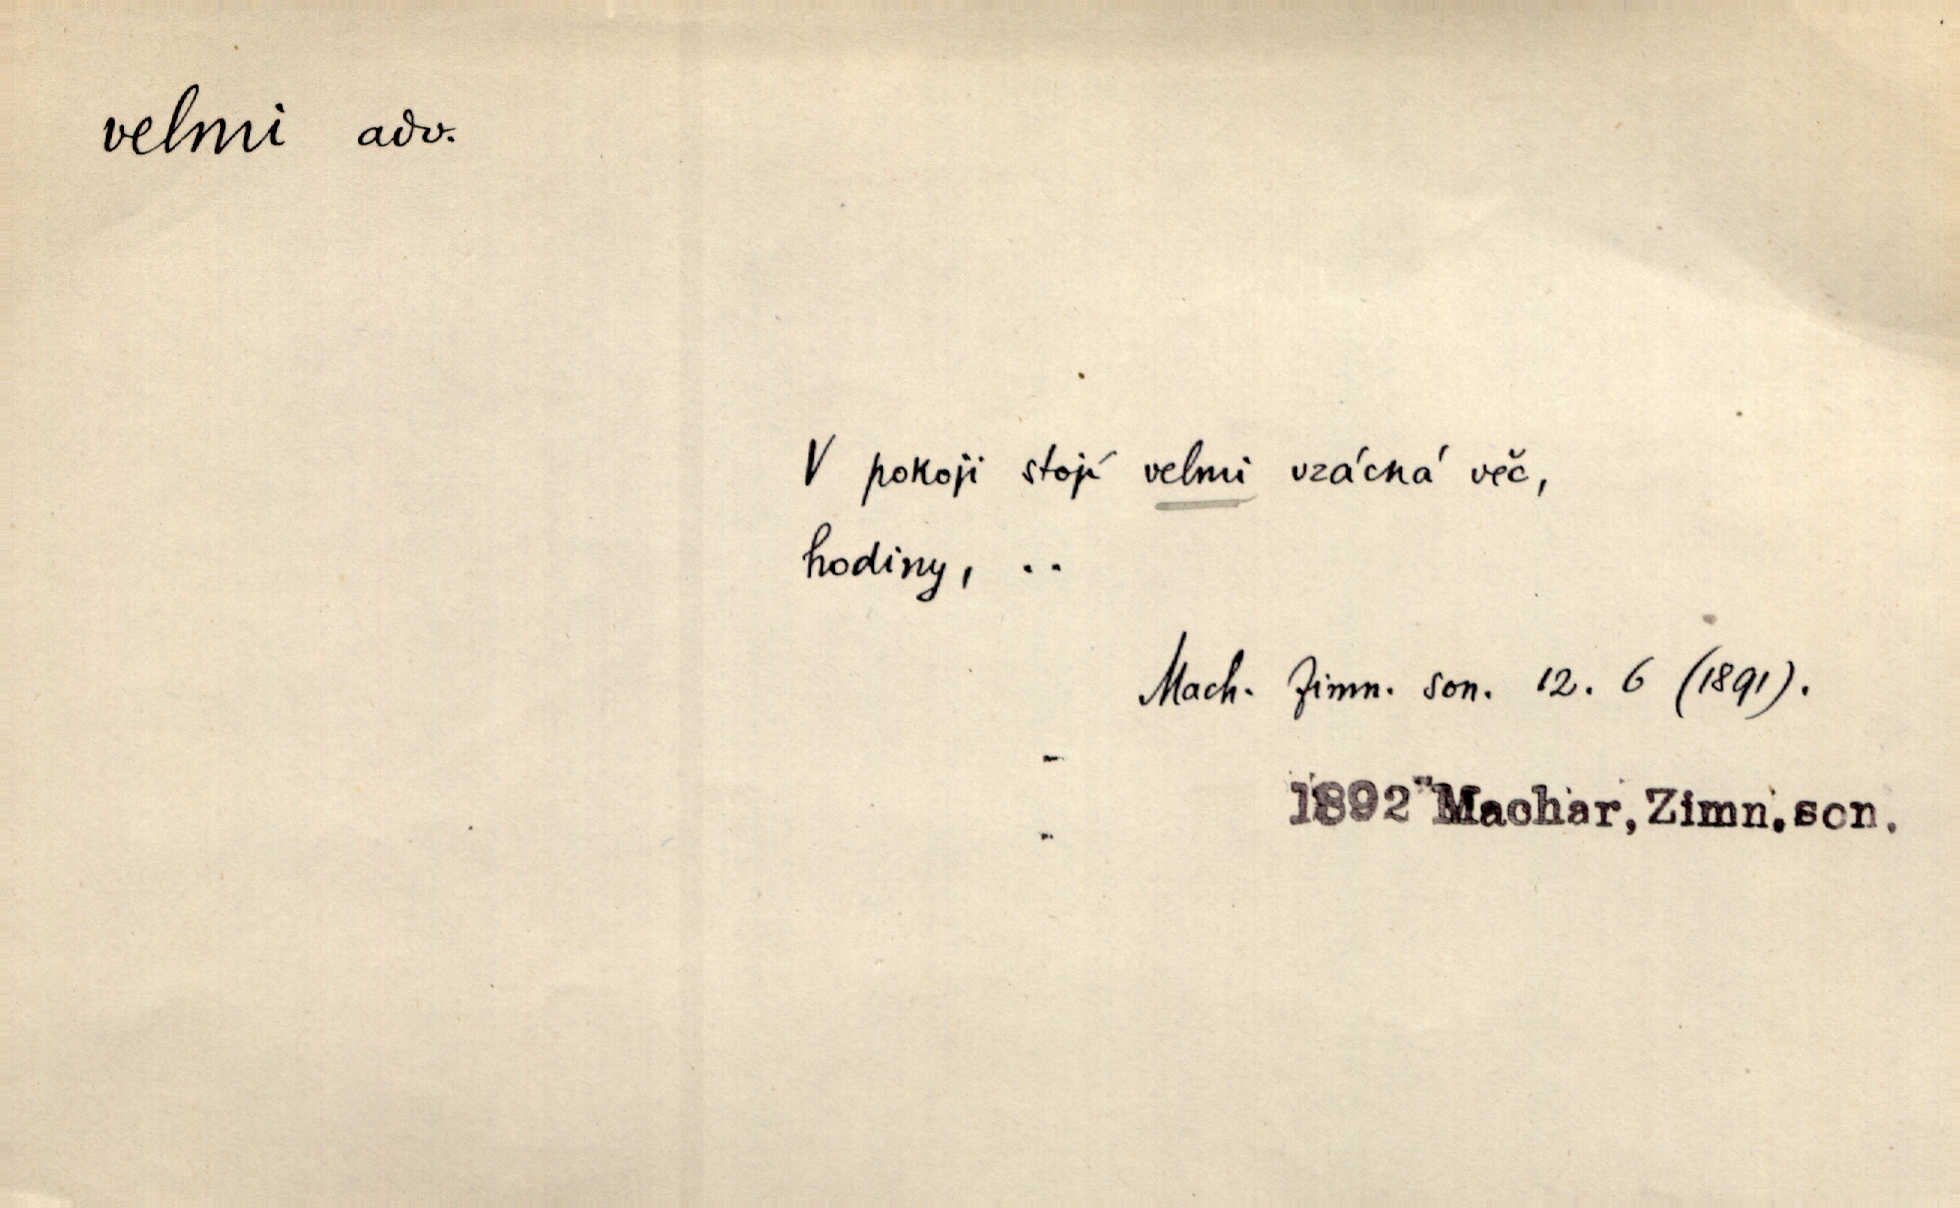 velmi adv.
V pokoji stojí velmi vzácná věč,
hodiny, ..
Mach. Zimn. son. 12. 6 (1891).
1892 Machar, Zimn. son.